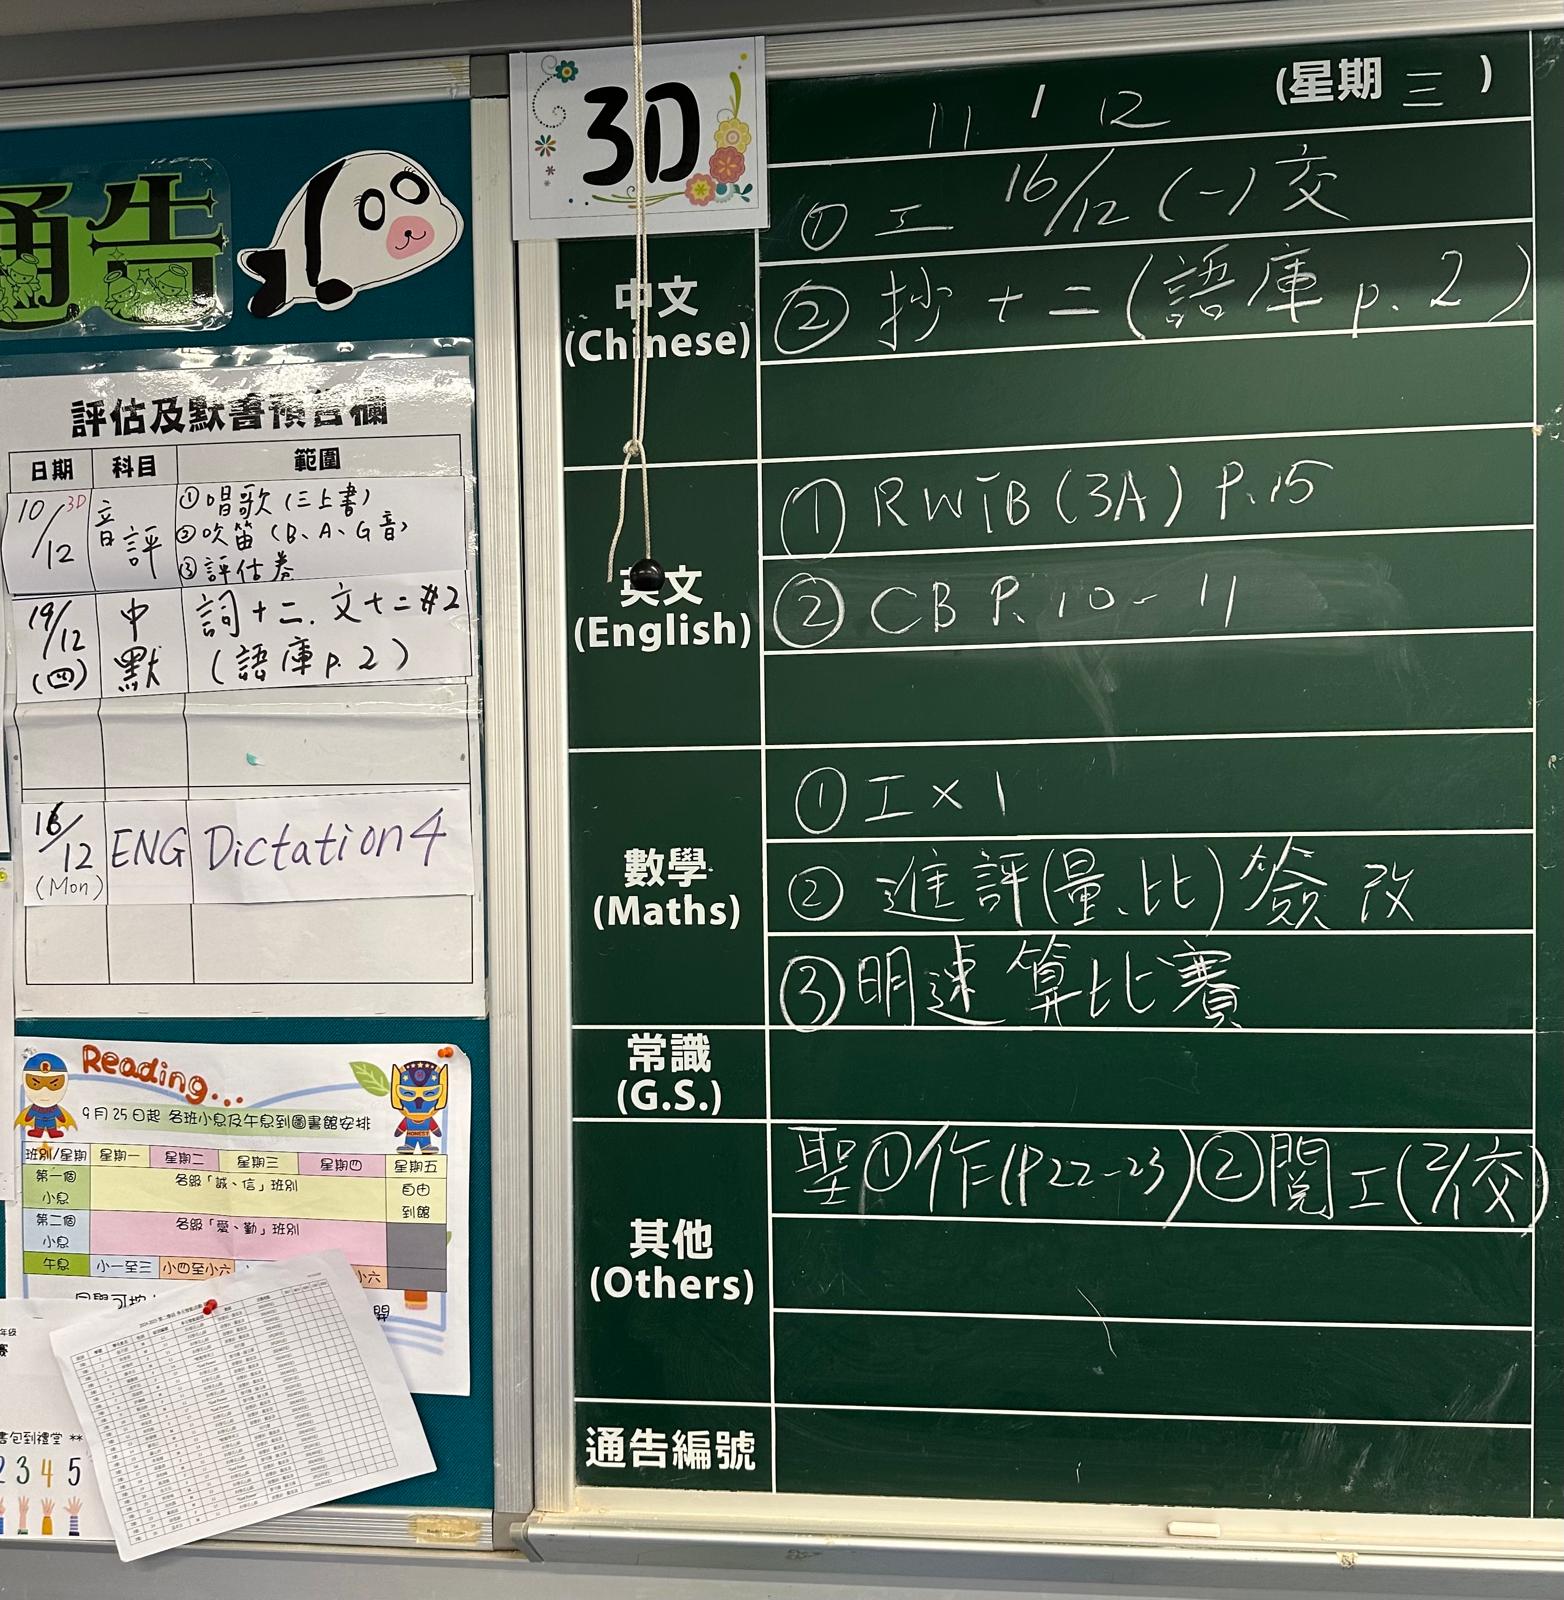 通告
評估及默書預告欄
日期 科目 範圍
10/12 3D 音評 ①唱歌(三上書)
②吹笛(B、A、G音)
③評估卷
19/12 (四) 中默 詞十二. 文十二#2
(語庫p.2)
16/12 (Mon) ENG Dictation 4
Reading...
9月25日起 各班小息及午息到圖書館安排
班別/星期 星期一 星期二 星期三 星期四 星期五
第一個小息 各級「誠、信」班別 自由到館
第二個小息 各級「愛、勤」班別
午息 小一至三 小四至小六 小六
HONEST
年級
書包到禮堂 **
2 3 4 5
3D
11 / 12 (星期 三)
中文
(Chinese)
① 工 16/12 (一) 交
② 抄十二(語庫 p.2)
英文
(English)
① RWTB (3A) P.15
② CB P.10-11
數學
(Maths)
① 工×1
② 進評(量、比)簽改
③ 明速算比賽
常識
(G.S.)
其他
(Others)
聖①作(P22-23)②閱工(2/1交)
通告編號